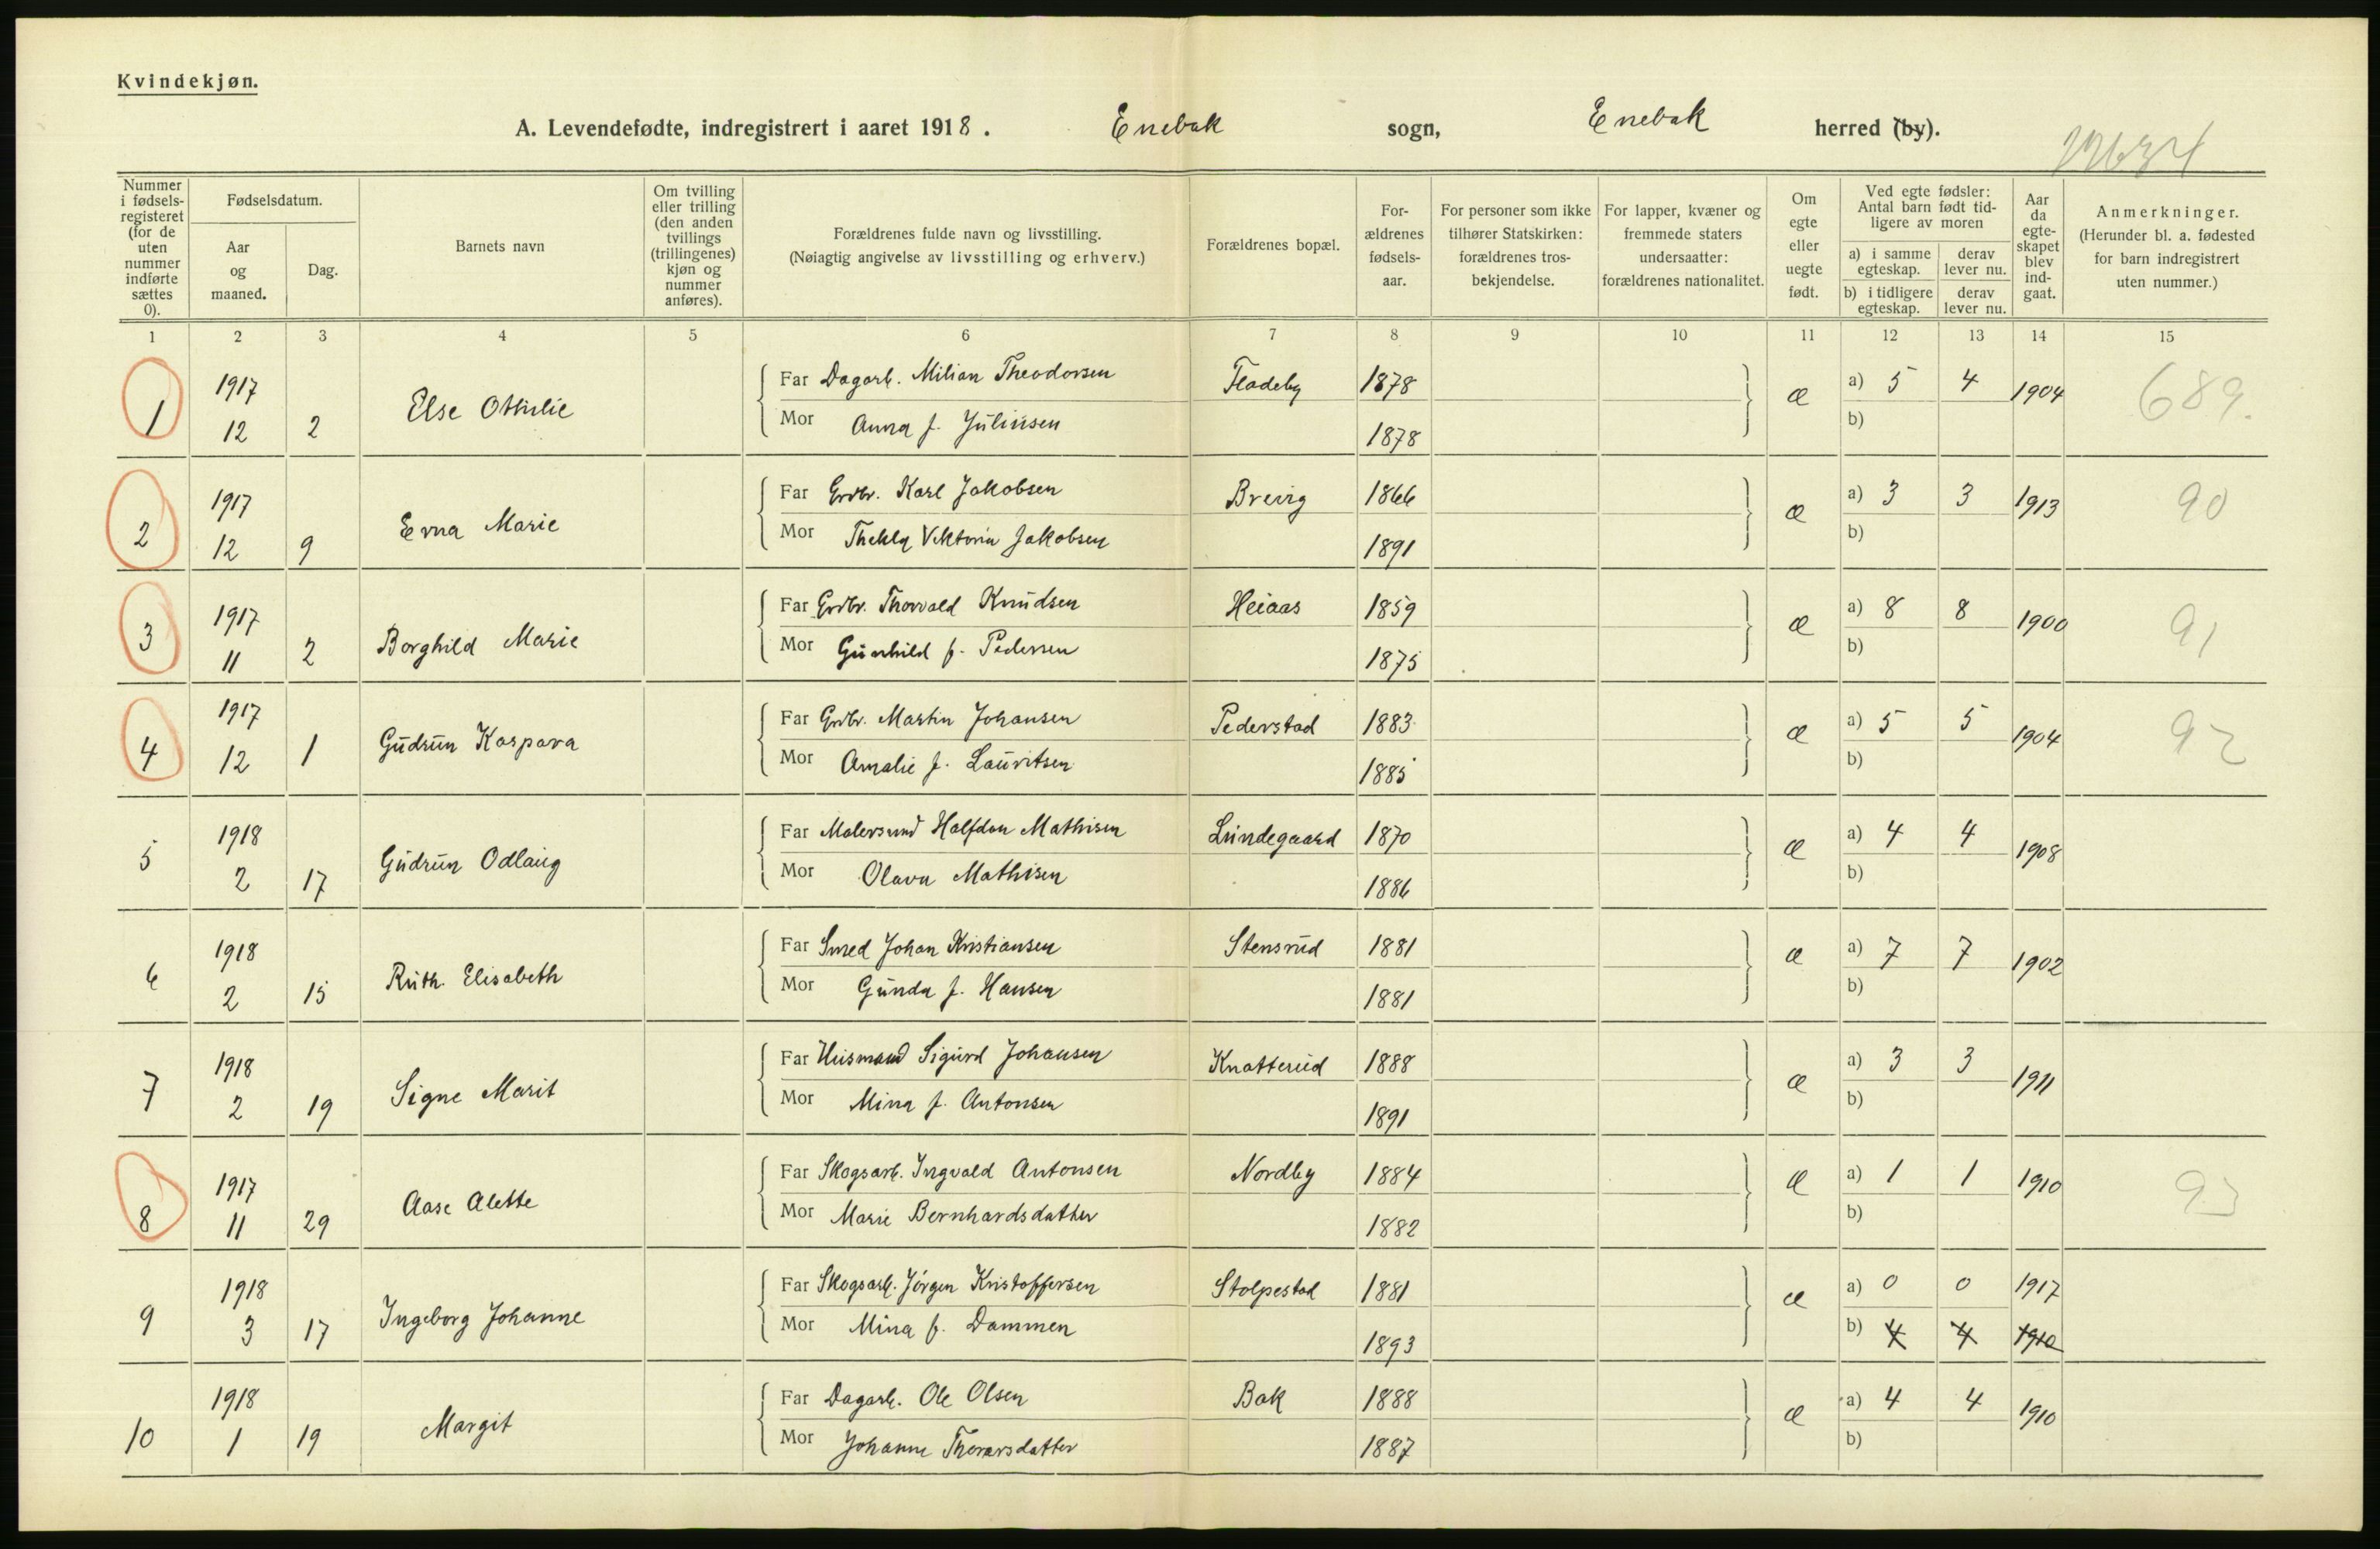 Kvindekjøn.
A. Levendefødte, indregistrert i aaret 1918. Enebak sogn, Enebak herred (by).
Nummer i fødsels-registeret (for de uten nummer indførte sættes 0).
Fødselsdatum.
Aar og maaned.
Dag.
Barnets navn
Om tvilling eller trilling (den anden tvillings (trillingenes) kjøn og nummer anføres).
Forældrenes fulde navn og livsstilling.
(Nøiagtig angivelse av livsstilling og erhverv.)
Forældrenes bopæl.
For-ældrenes fødsels-aar.
For personer som ikke tilhører Statskirken: forældrenes tros-bekjendelse.
For lapper, kvæner og fremmede staters undersaatter: forældrenes nationalitet.
Om egte eller uegte født.
Ved egte fødsler: Antal barn født tid-ligere av moren
a) i samme egteskap. derav lever nu.
b) i tidligere egteskap. derav lever nu.
Aar da egte-skapet blev ind-gaat.
Anmerkninger.
(Herunder bl. a. fødested for barn indregistrert uten nummer.)
1 2 3 4 5 6 7 8 9 10 11 12 13 14 15
1 1917 12 2 Else Othilie Far Dagarb. Milian Theodorsen Fladeby 1878 æ a) 5 4 1904 689.
Mor Anna f. Juliussen 1878 b)
2 1917 12 9 Erna Marie Far Grdbr. Karl Jakobsen Brevig 1866 æ a) 3 3 1913 90
Mor Thekla Viktoria Jakobsen 1891 b)
3 1917 11 2 Borghild Marie Far Grdbr. Thorvald Knudsen Heiaas 1859 æ a) 8 8 1900 91
Mor Gunhild f. Pedersen 1875 b)
4 1917 12 1 Gudrun Kaspara Far Grdbr. Martin Johansen Pederstad 1883 æ a) 5 5 1904 92
Mor Amalie f. Lauritsen 1885 b)
5 1918 2 17 Gudrun Odlaug Far Malersvend Halfdan Mathisen Lundegaard 1870 æ a) 4 4 1908
Mor Olava Mathisen 1886 b)
6 1918 2 15 Ruth Elisabeth Far Smed Johan Kristiansen Stensrud 1881 æ a) 7 7 1902
Mor Gunda f. Hansen 1881 b)
7 1918 2 19 Signe Marit Far Husmand Sigurd Johansen Knatterud 1888 æ a) 3 3 1911
Mor Mina f. Antonsen 1891 b)
8 1917 11 29 Aase Alette Far Skogsarb. Ingvald Antonsen Nordby 1884 æ a) 1 1 1910 93
Mor Marie Bernhardsdatter 1882 b)
9 1918 3 17 Ingeborg Johanne Far Skogsarb. Jörgen Kristoffersen Stolpestad 1881 æ a) 0 0 1917
Mor Mina f. Dammen 1893 b) 4 4 1910
10 1918 1 19 Margit Far Dagarb. Ole Olsen Bak 1888 æ a) 4 4 1910
Mor Johanne Thorarsdatter 1887 b)